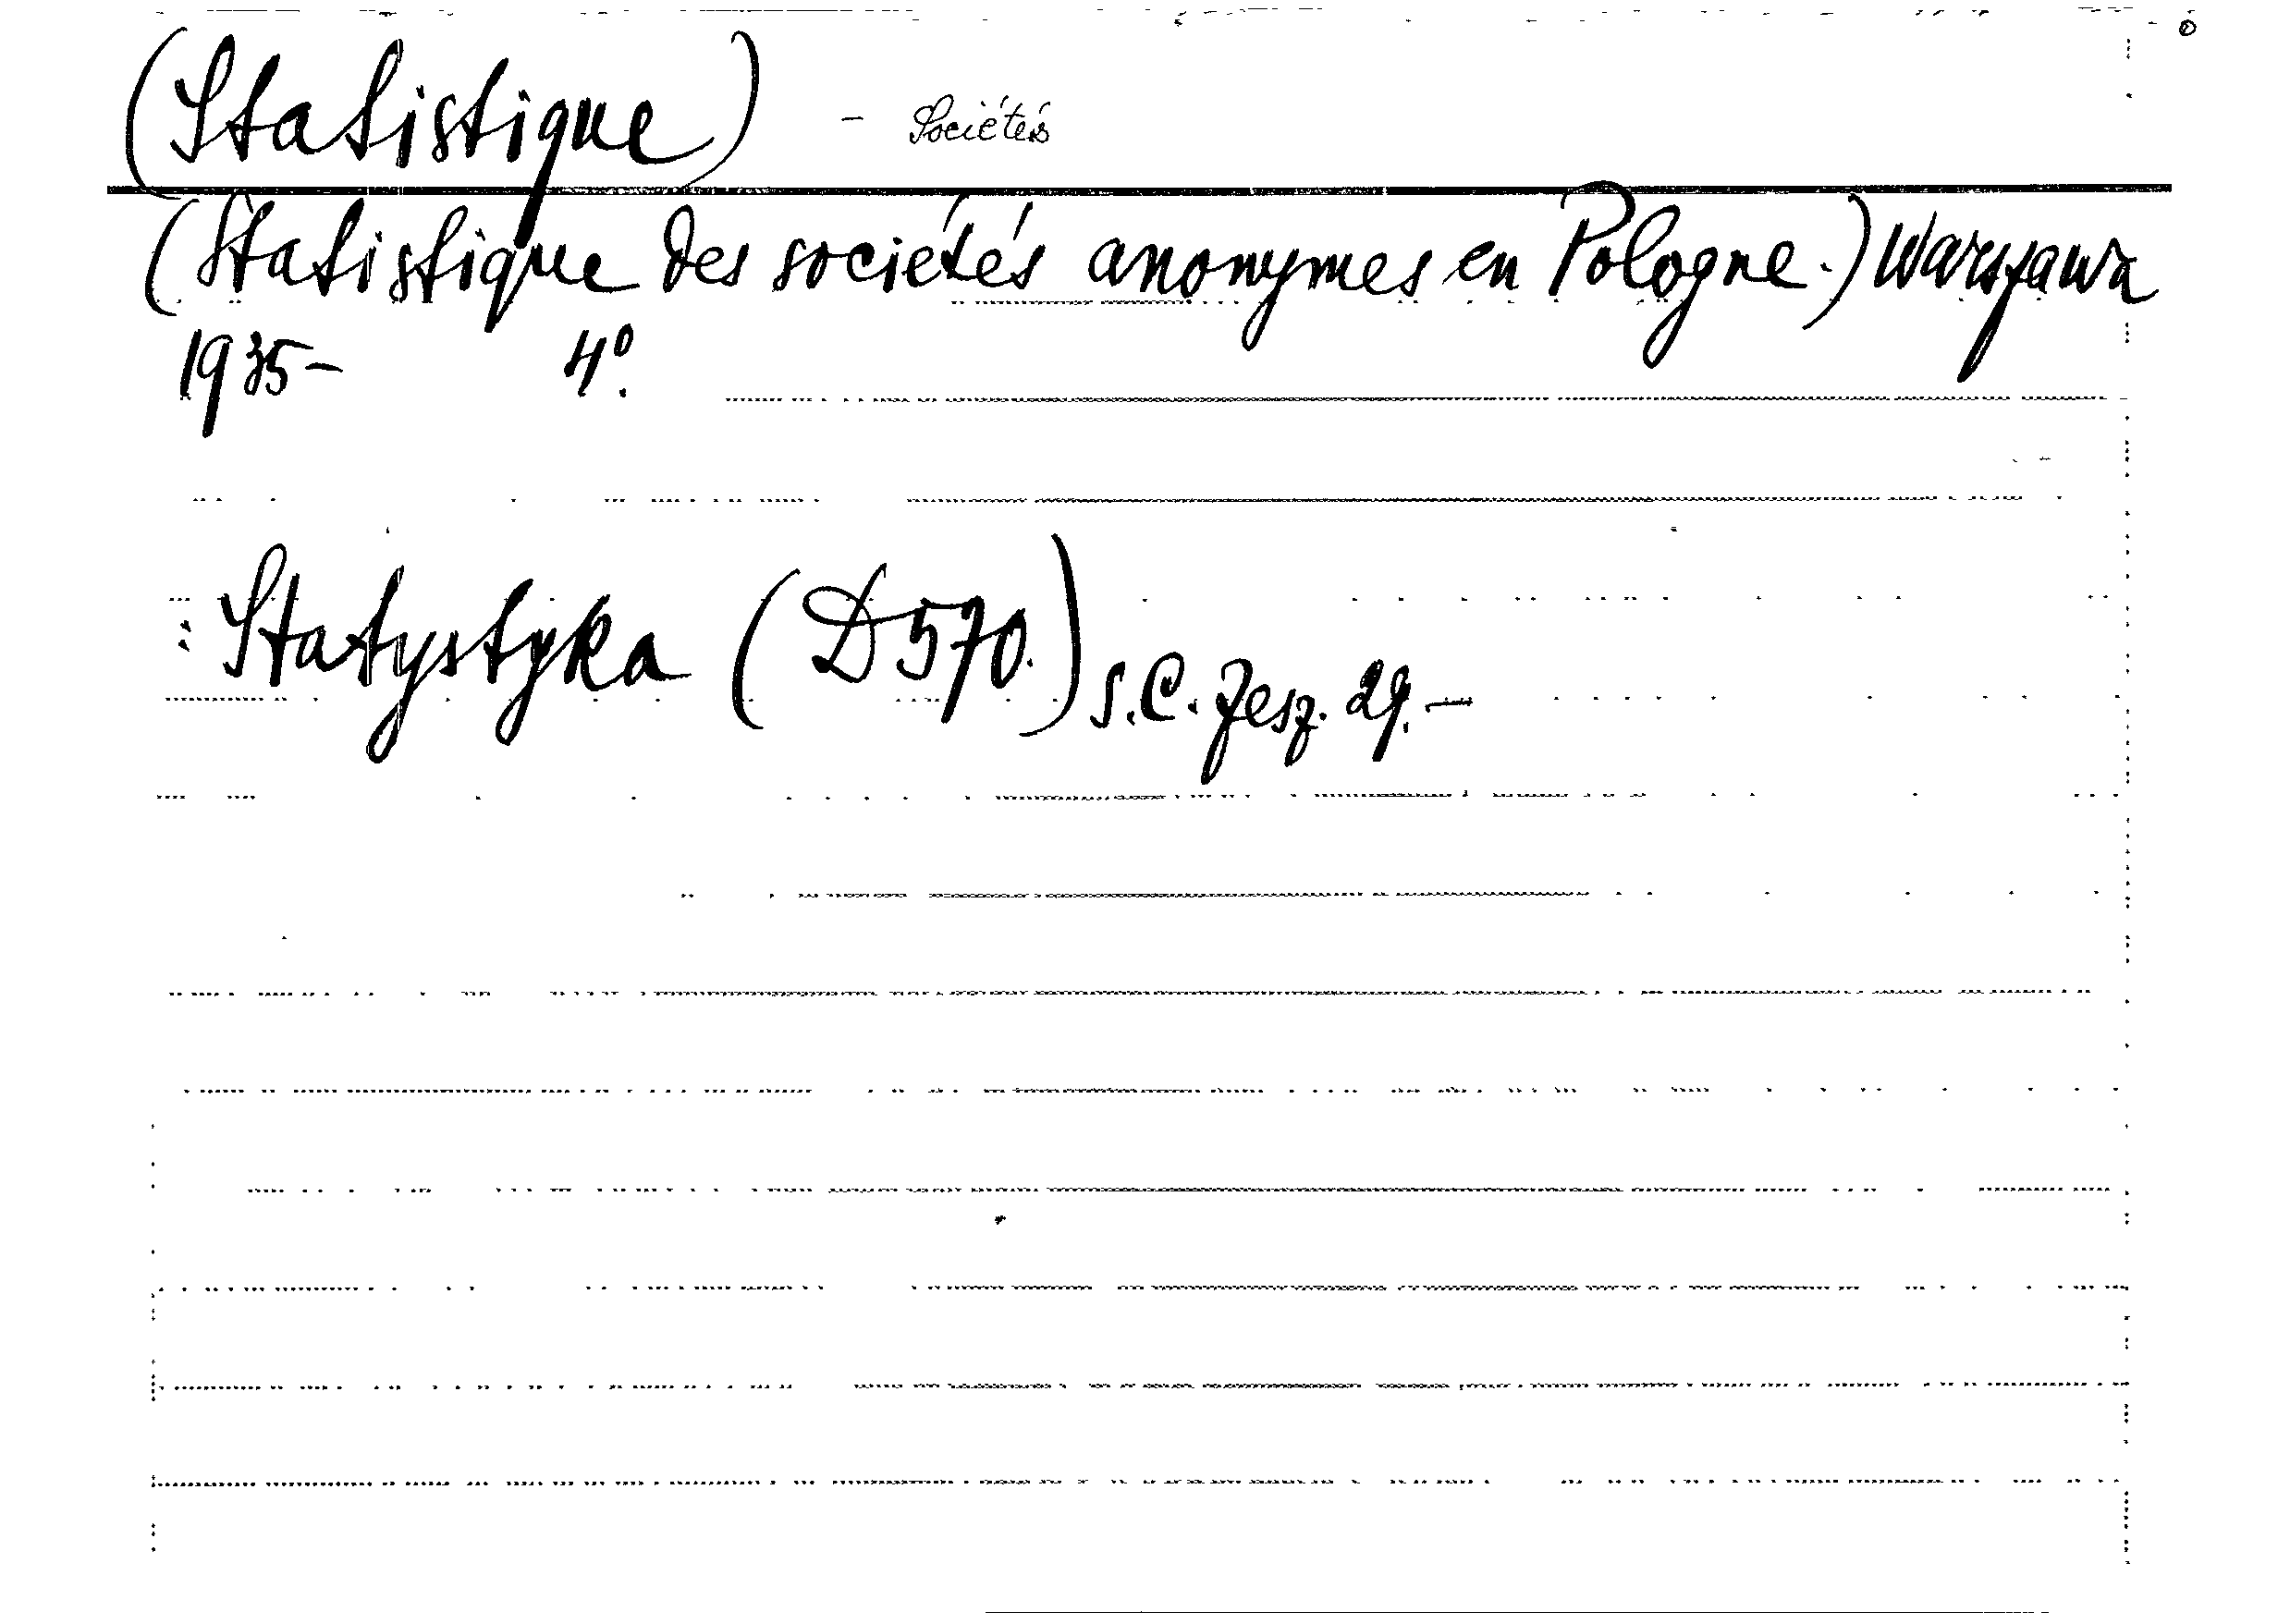 (Statistique) - Sociétés
(Statistique des sociétés anonymes en Pologne.) Warszawa
1935- 4°.
: Statystyka (D570.) S.C. Zesz. 29.-